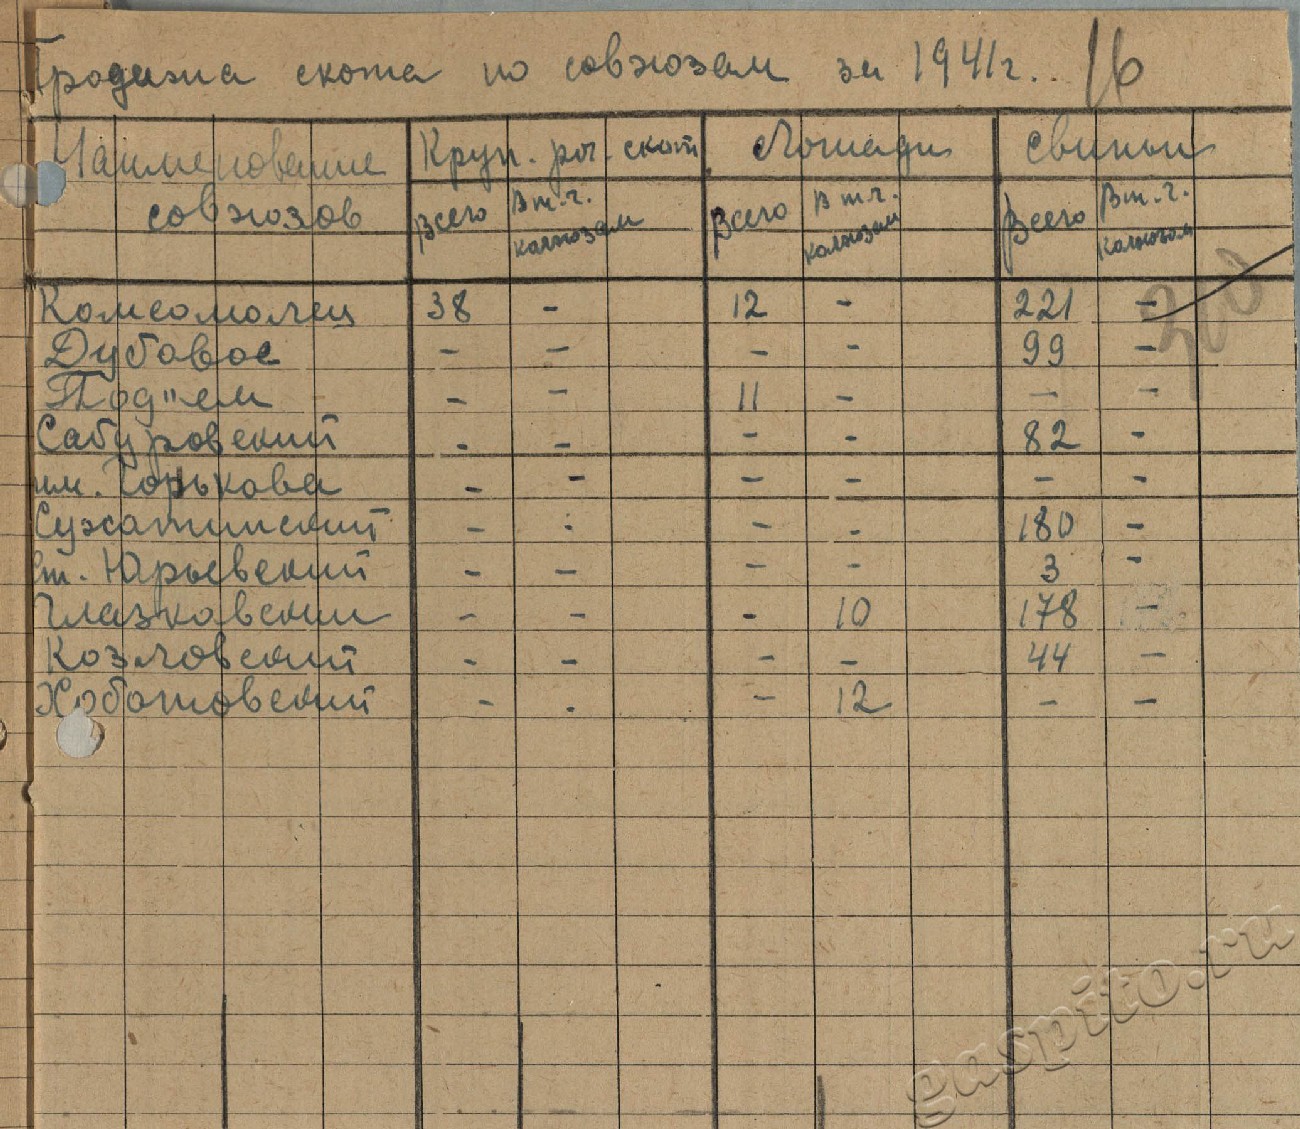 Продажа скота по совхозам за 1941г. 16
Наименование совхозов Круп. рог. скот Лошади Свиньи
Всего В т.ч. колхозам Всего В т.ч. колхозам Всего В т.ч. колхозам
Комсомолец 38 - 12 - 221 -
Дубовое - - - - 99 -
Под"ем - - 11 - - -
Сабуровский - - - - 82 -
им. Горькова - - - - - -
Сухатинский - - - - 180 -
Ст. Юрьевский - - - - 3 -
Глазковский - - - 10 178 -
Козловский - - - - 44 -
Хоботовский - . - 12 - -
gaspito.ru